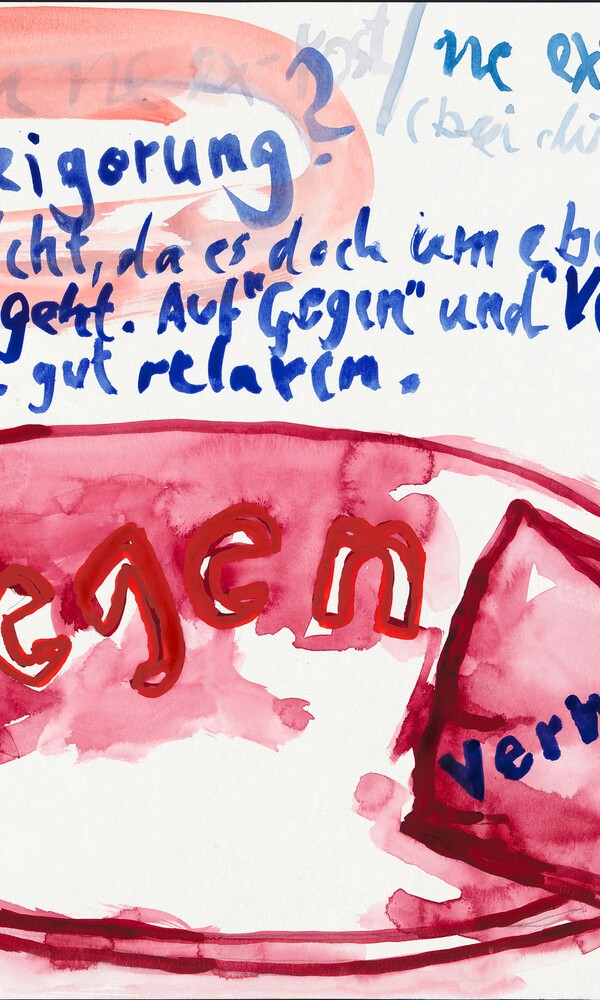 ne ex-post / ne ex
(bei di
eigerung?
icht, da es doch um ebe
geht. Auf "Gegen" und "V
gut relaxen.
egen
ver